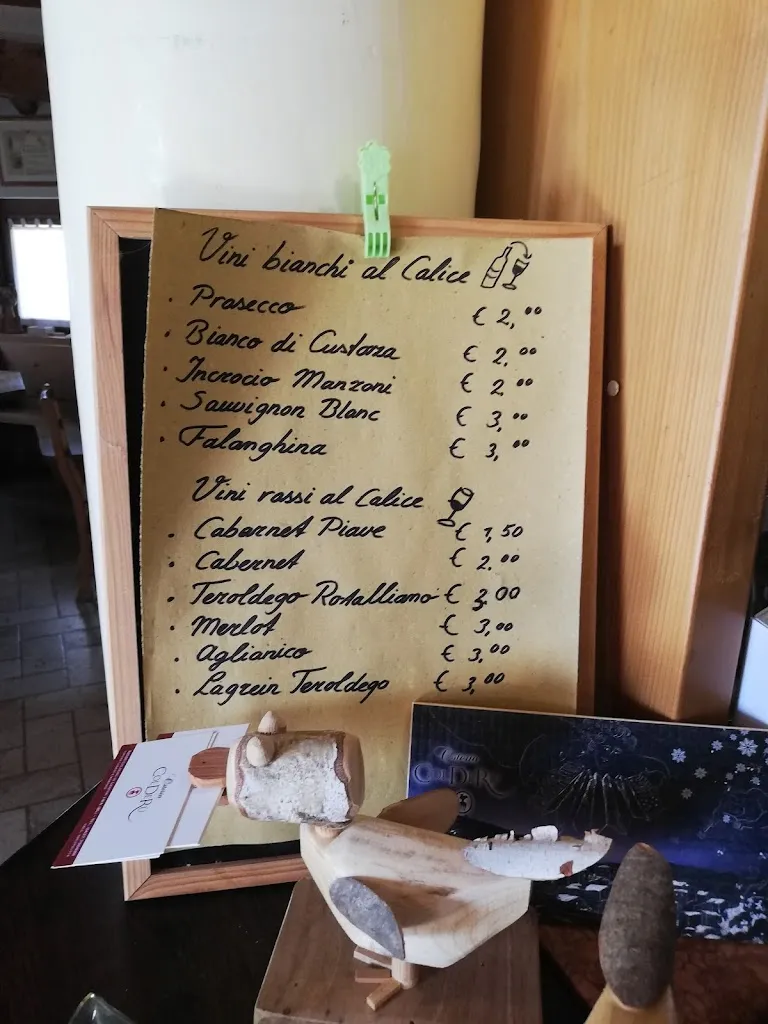 Vini bianchi al Calice
. Prosecco € 2,⁰⁰
. Bianco di Custoza € 2,⁰⁰
. Incrocio Manzoni € 2,⁰⁰
. Sauvignon Blanc € 3,⁰⁰
. Falanghina € 3,⁰⁰
Vini rossi al Calice
. Cabernet Piave € 1,50
. Cabernet € 2,⁰⁰
. Teroldego Rotalliano € 3,00
. Merlot € 3,00
. Aglianico € 3,⁰⁰
. Lagrein Teroldego € 3,⁰⁰
Col De Rü
Col De Rü